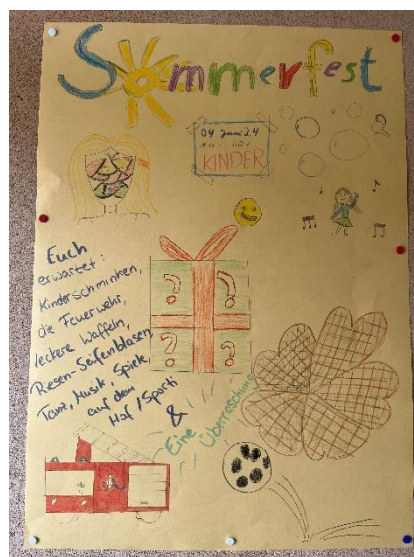 Sommerfest
04 Juni 24
Nur für
KINDER
Euch
erwartet:
Kinderschminken,
die Feuerwehr,
leckere Waffeln,
Riesen-Seifenblasen,
Tanz, Musik, Spiele,
auf dem
Hof /Sport
&
Eine Überraschung